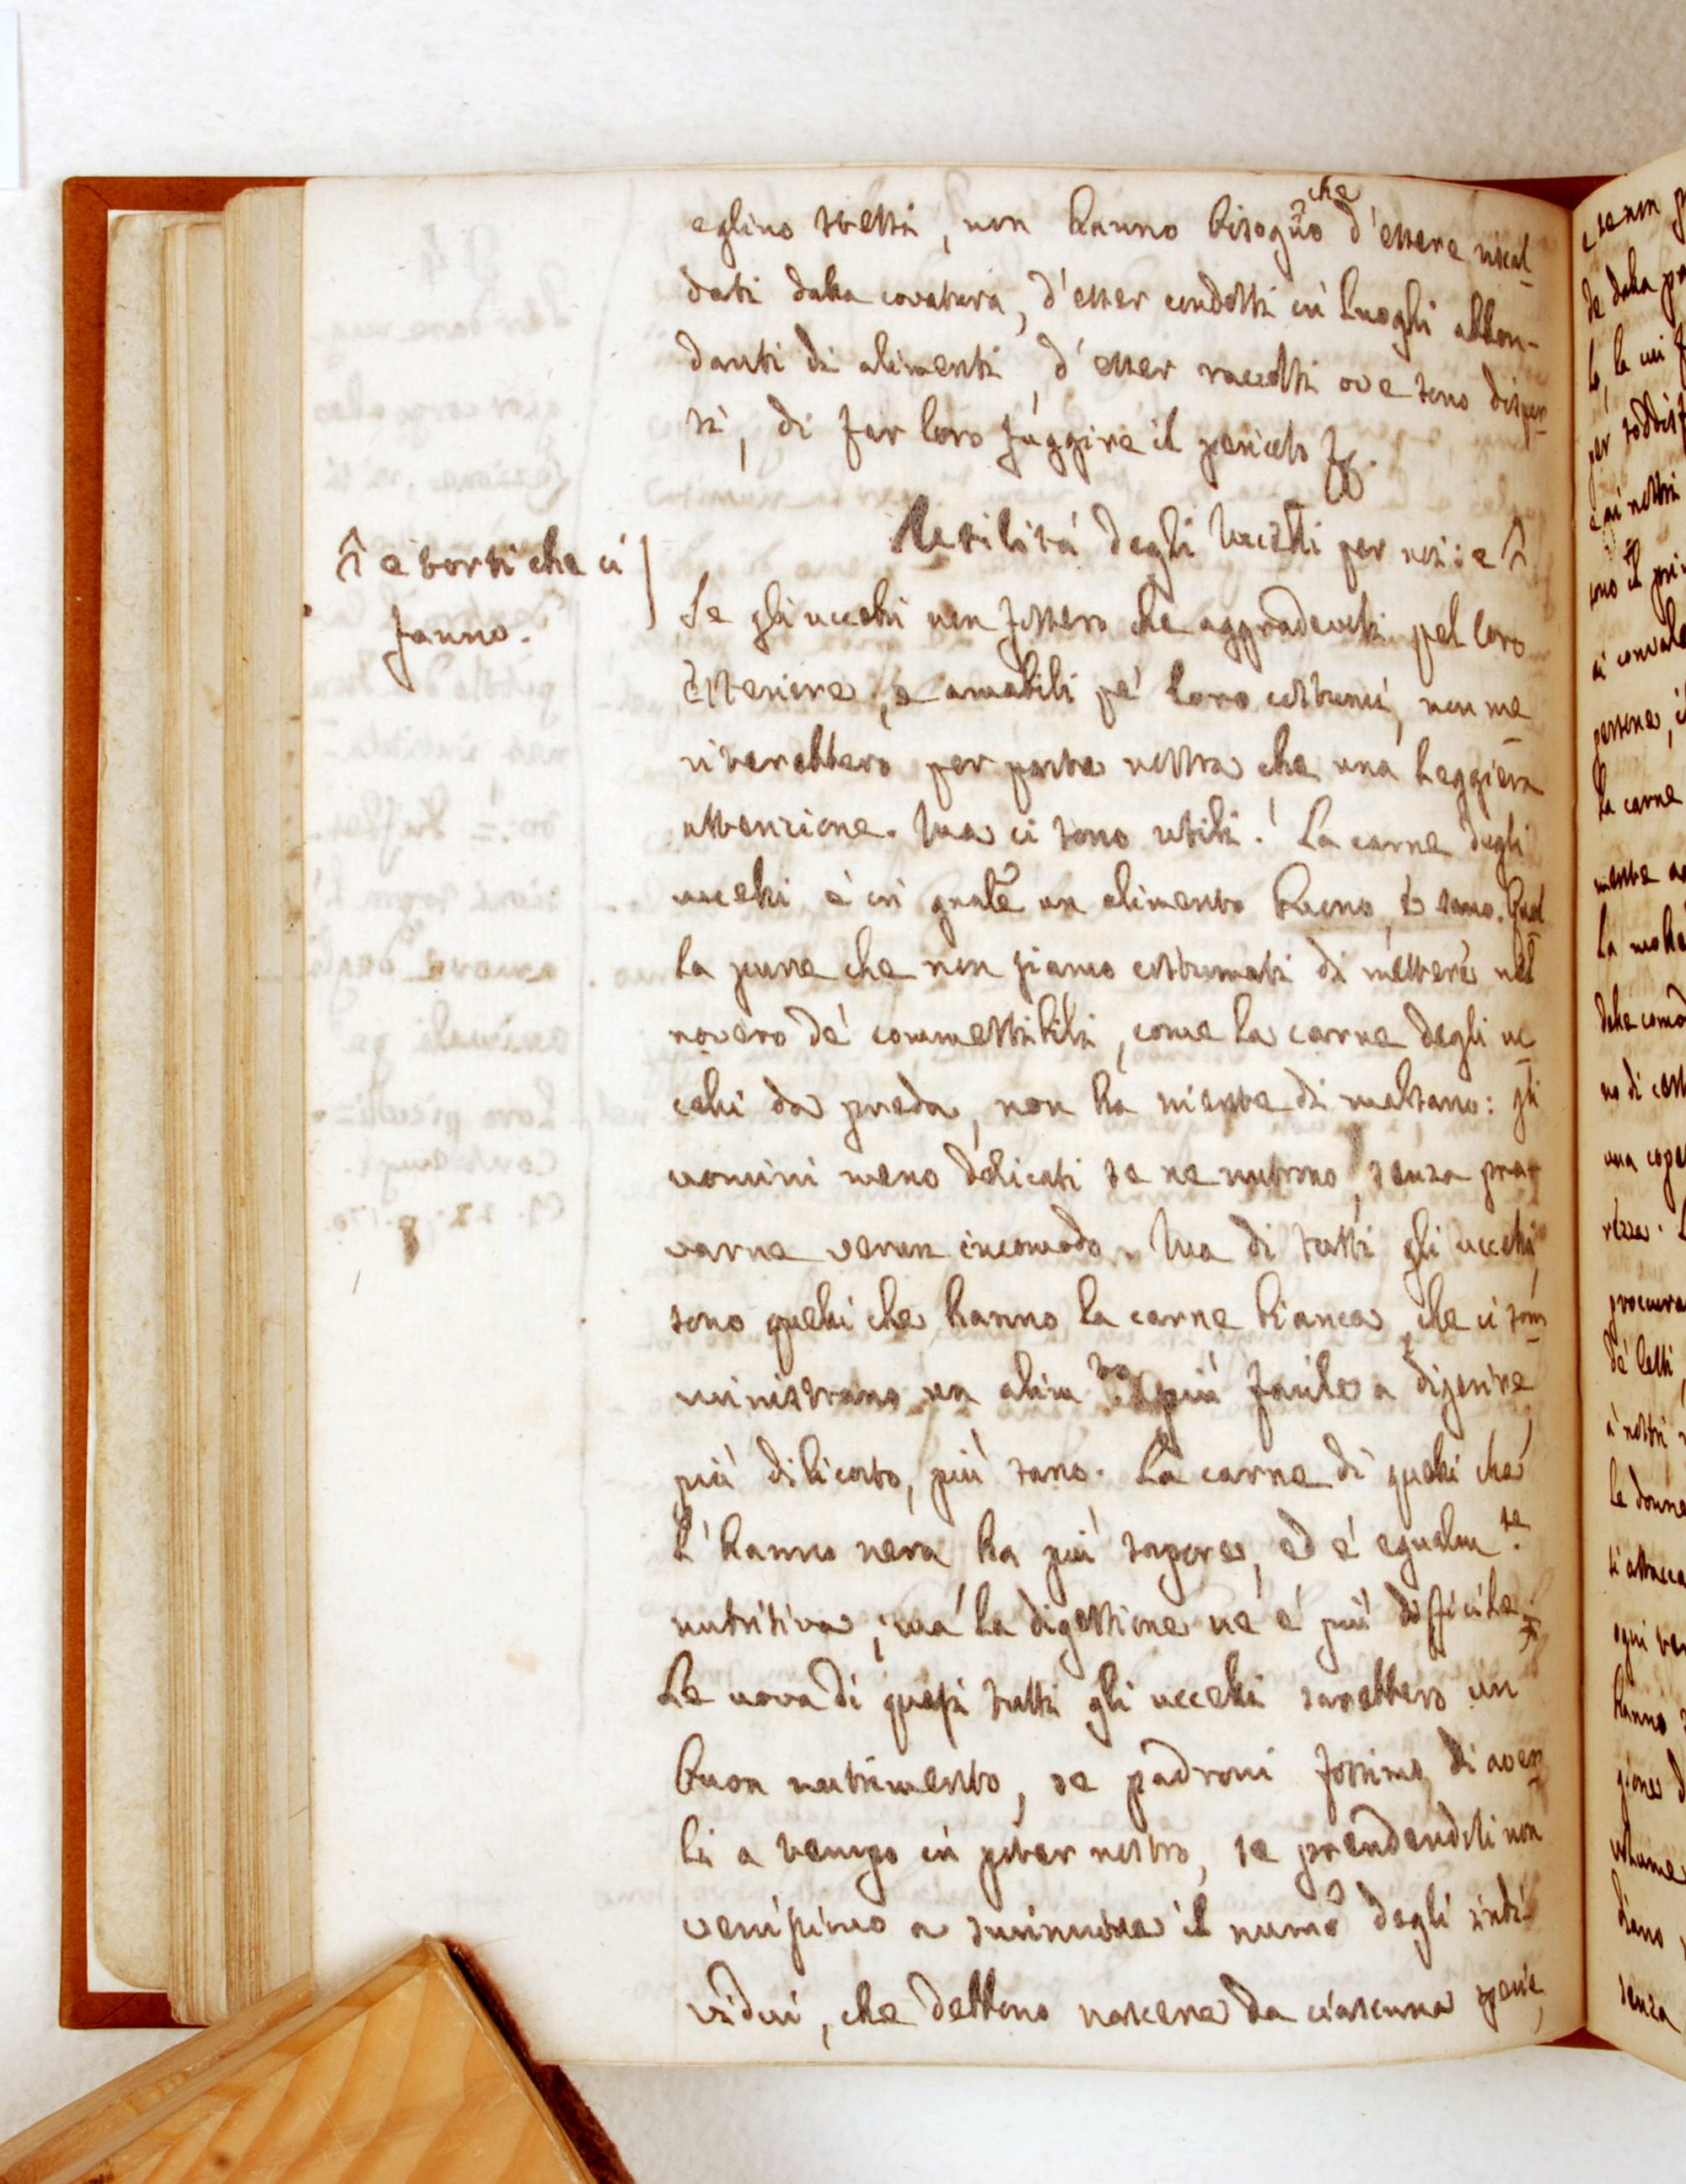 eglino stessi, non hanno bisogno che d'essere riscal-
dati dalla covatura, d'esser condotti in luoghi abbon-
danti di alimenti, d'esser raccolti ove sono disper-
si, di far loro fuggire il pericolo
Utilità degli Uccelli per noi: e
e torti che ci
fanno.
Se gli uccelli non fossero che aggradevoli pel loro
Esteriore, e amabili pe' loro costumi, non me-
riterebbero per parte nostra che una leggiera
attenzione. Ma ci sono utili. La carne degli
uccelli è in gnãle un alimento buono, e sano. Quel-
la pure che non siamo costumati di mettere nel
novero de' commestibili, come la carne degli uc-
celli da preda, non ha niente di malsano: gli
uomini meno delicati se ne nutrono, senza pro-
varne verun incomodo. Ma di tutti gli uccelli
sono quelli che hanno la carne bianca, che ci som-
ministrano un alim.to più facile a digerire,
più dilicato, più sano. La carne di quelli che
l'hanno nera ha più sapore, ed è egualm.te
nutritiva; ma la digestione ne è più difficile.
Le uova di quasi tutti gli uccelli sarebbero un
buon nutrimento, se padroni fossimo di aver-
li a tempo in poter nostro, se prendendoli non
venissimo a sminuire il numõ degli indi-
vidui, che debbono nascere da ciascuna specie,